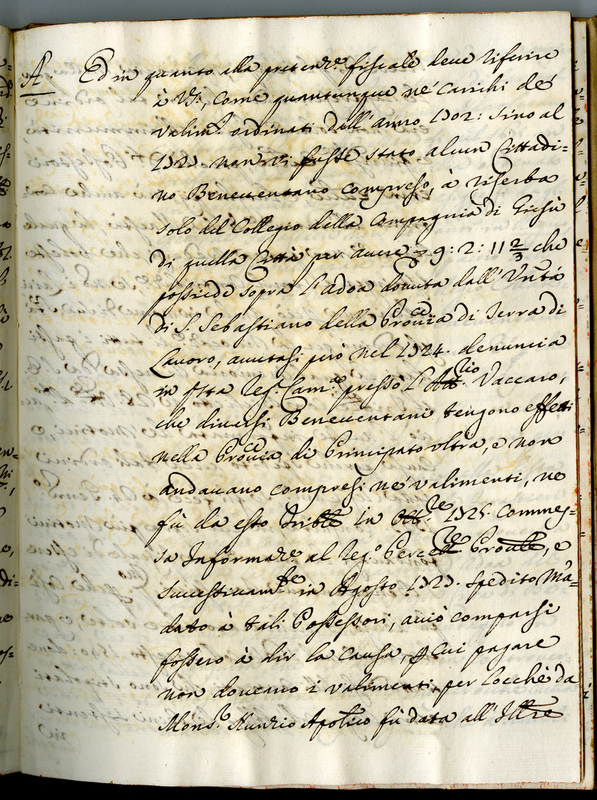 A. Ed in quanto alla preten.ne fiscale deve riferire
à V.S., come quantunque né carichi dé
valim.ti ordinati dall'anno 1702: sino al
1723. non vi fusse stato alcun Cittadi=
no Beneventano compreso, à riserba
solo del Collegio della Compagnia di Giesù
di quella Città per avere 9: 2: 11 2/3 che
possiede sopra l'Adoa dovuta dall'Un.tà
di S. Sebastiano della Prov.cia di Terra di
Lavoro, avutasi però nel 1724. denuncia
in q.sta Reg. Cam.ra presso l' Vaccaro,
che diversi Beneventani tengono effetti
nella Prov.cia di Principato oltra, e non
andavano compresi né valimenti, ne
fù da esto Trib.le in Ott.re 1725 commes=
sa Informaz.ne al Reg.o Percett.re Prov.le, e
successivam.te in Agosto 1727. spedito Mã=
dato à tali Possessori, acciò comparsi
fossero à dir la causa, p cui pagare
non doveano i valimenti, per locché da
Mons.r Nunzio Ap.lico fù data all' Ill.re